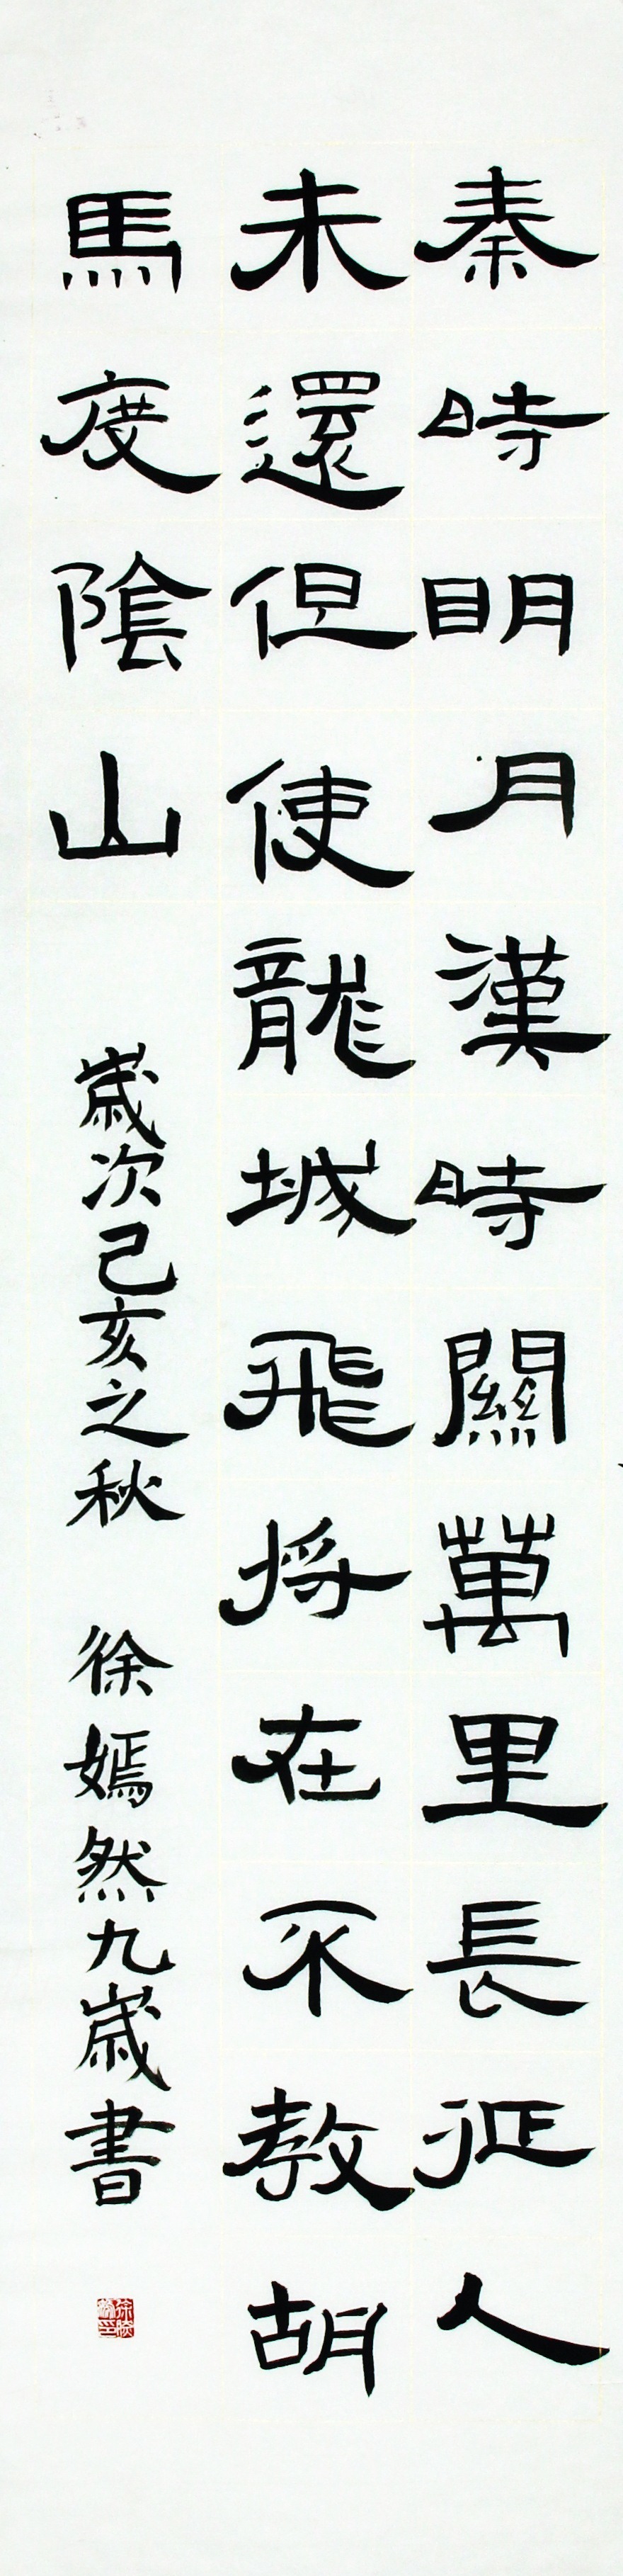 秦時明月漢時關萬里長征人
未還但使龍城飛將在不教胡
馬度陰山
歲次己亥之秋 徐嫣然九歲書